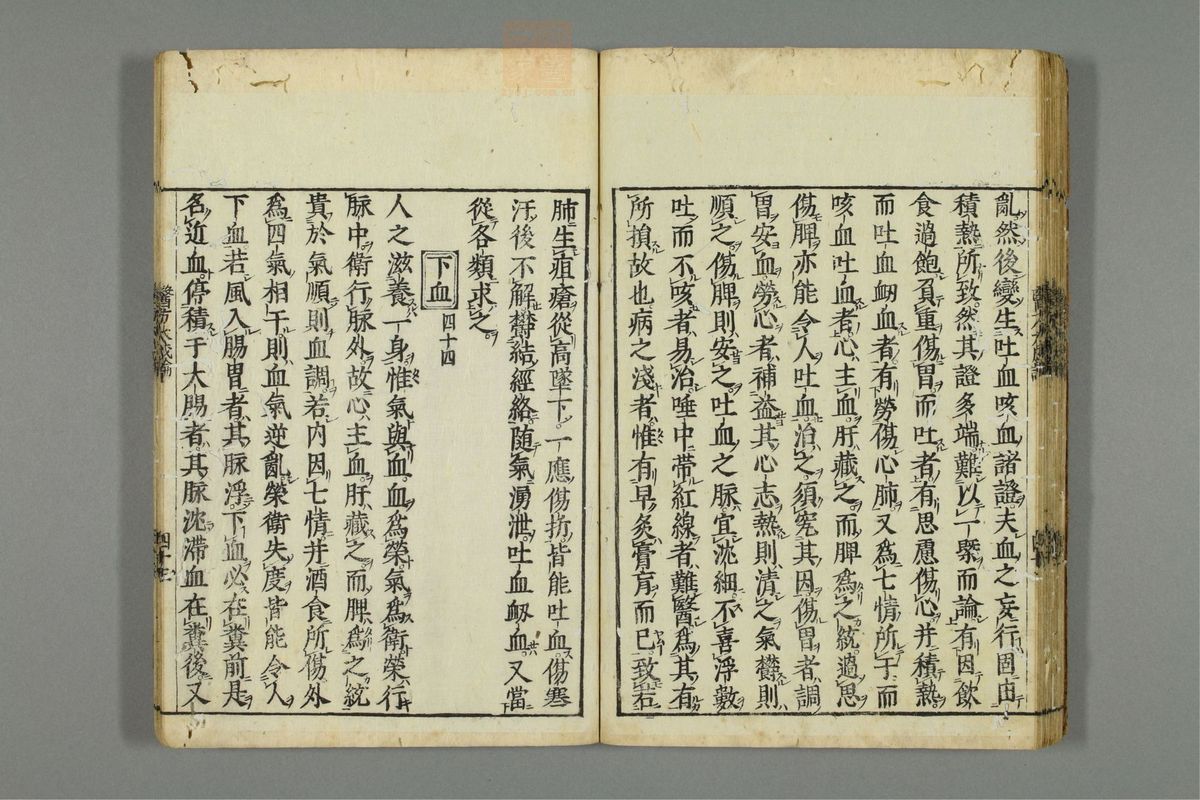 亂然後變生吐血咳血諸證夫血之妄行固由
積熱所致然其證多端難以一槩而論有因飲
食過飽負重傷胃而吐者有思慮傷心并積熱
而吐血衂血者有勞傷心肺又爲七情所干而
咳血吐血者心主血肝藏之而脾爲之統過思
傷脾亦能令人吐血治之須究其因傷胃者調
胃安血勞心者補益其心志熱則清之氣欝則
順之傷脾則安之吐血之脉宜沈細不喜浮數
吐而不咳者易治唾中帶紅線者難醫爲其有
所損故也病之淺者惟有早灸膏肓而已致若
肺生疽瘡從高墜下一應傷折皆能吐血傷寒
汗後不解欝結經絡随氣湧泄吐血衂血又當
從各類求之
下血 四十四
人之滋養一身惟氣與血血爲榮氣爲衛榮行
脉中衛行脉外故心主血肝藏之而脾爲之統
貴於氣順則血調若内因七情并酒食所傷外
爲四氣相干則血氣逆亂榮衛失度皆能令人
下血若風入腸胃者其脉浮下血必在糞前是
名近血停積于大腸者其脉沈滞血在糞後又